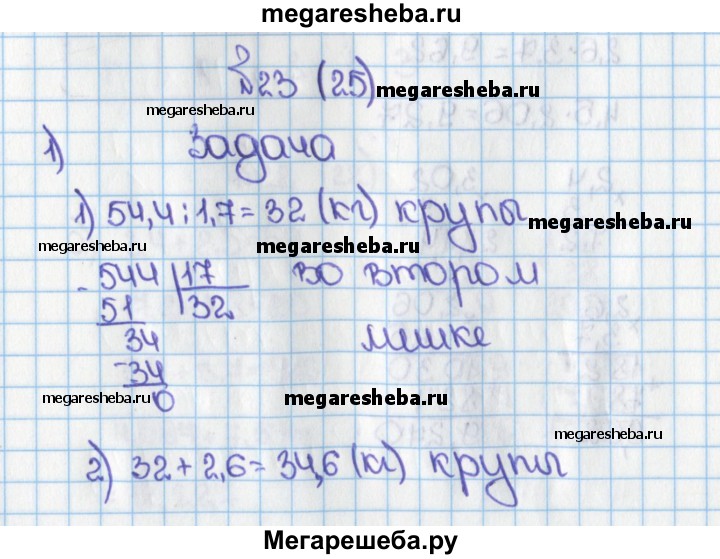 megaresheba.ru
№23 (25) megaresheba.ru
megaresheba.ru
1) Задача
1) 54,4:1,7=32 (кг) крупы megaresheba.ru
megaresheba.ru megaresheba.ru
- 544 | 17 во втором
51 32 мешке
34
- 34
megaresheba.ru 0 megaresheba.ru
megaresheba.ru
2) 32+2,6=34,6 (кг) крупы
Мегарешеба.ру